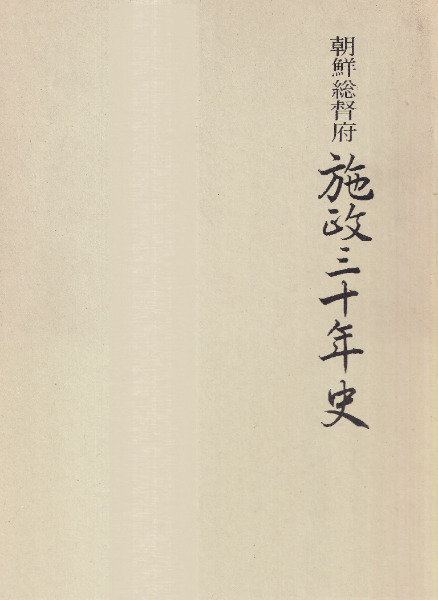 朝鮮総督府 施政三十年史